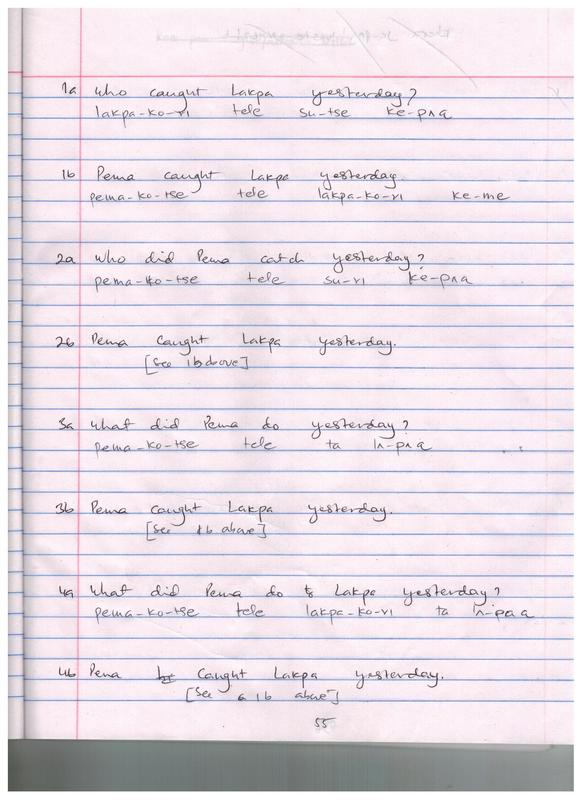 1a Who caught Lakpa yesterday?
lakpa-ko-ri tele su-tse ke-pʌa
1b Pema caught Lakpa yesterday.
pema-ko-tse tele lakpa-ko-ri ke-me
2a Who did Pema catch yesterday?
pema-ko-tse tele su-ri ke-pʌa
2b Pema caught Lakpa yesterday.
[See 1b above]
3a What did Pema do yesterday?
pema-ko-tse tele ta lʌ-pʌa
3b Pema caught Lakpa yesterday.
[See 1b above]
4a What did Pema do to Lakpa yesterday?
pema-ko-tse tele lakpa-ko-ri ta lʌ-pʌa
4b Pema caught Lakpa yesterday.
[See 1b above]
55